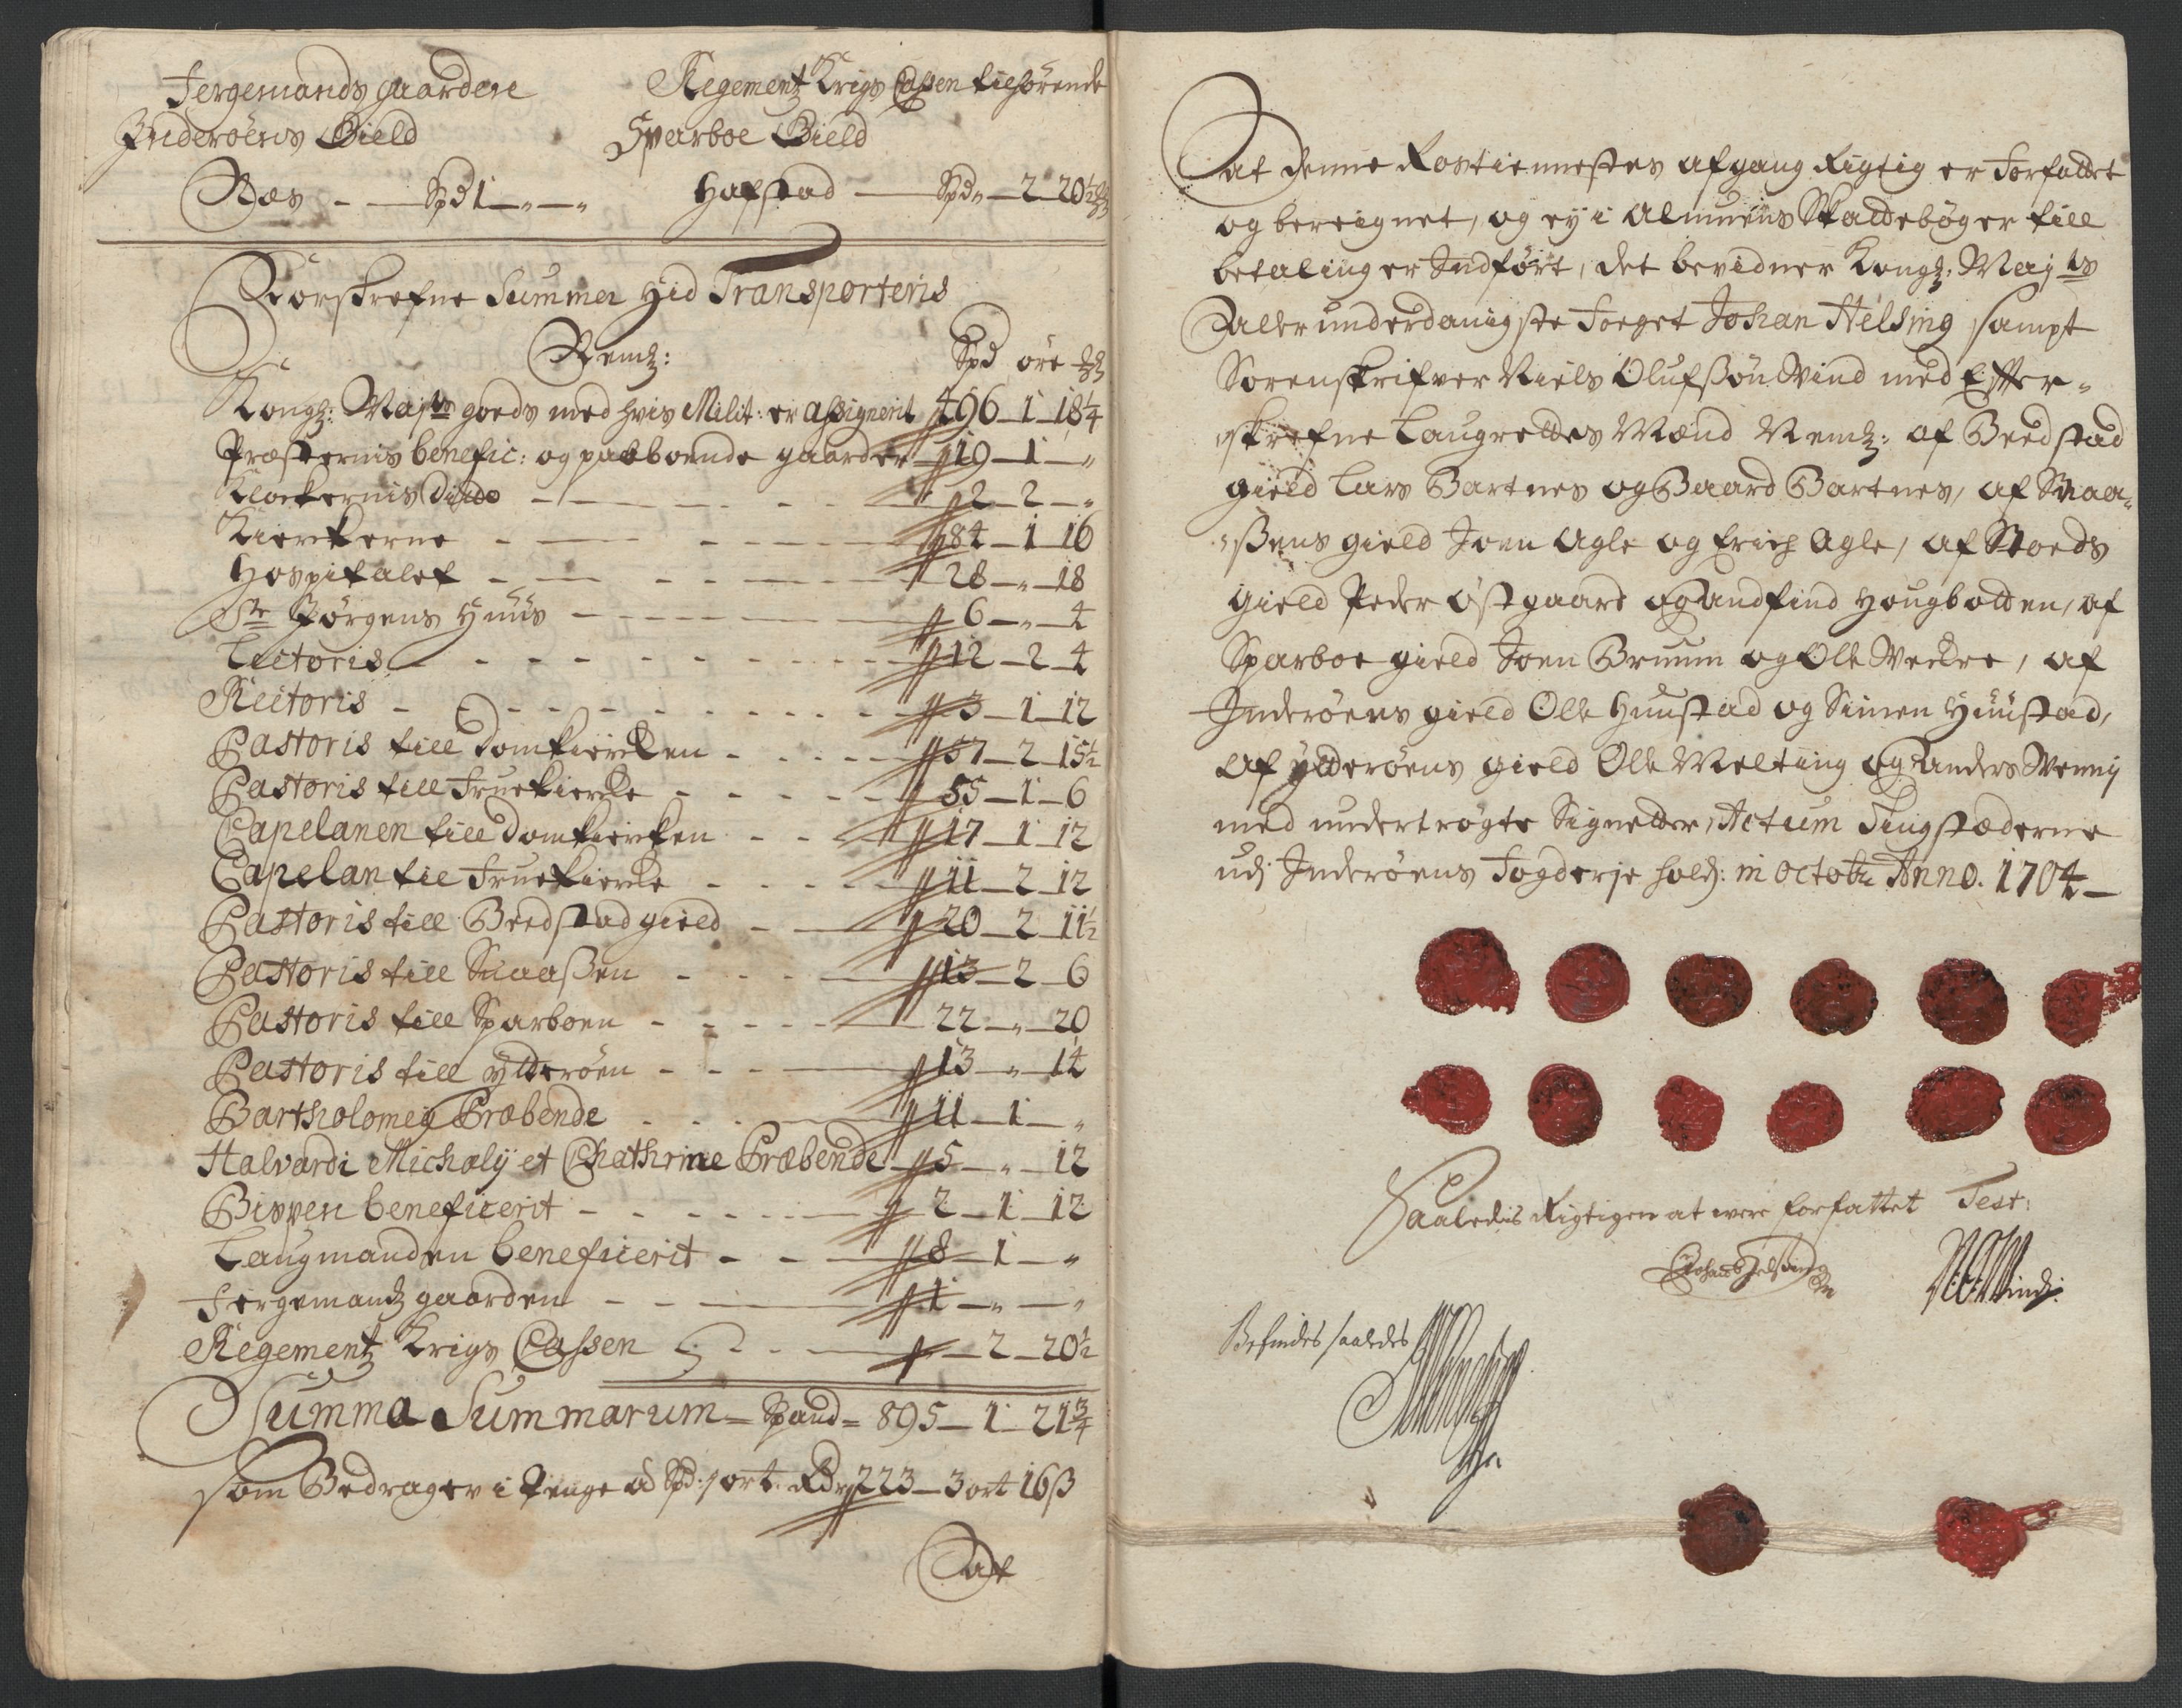 Fergemands gaarden
Inderøens Gield
Næs - Spd 1 - " - "
Regementz Krigs Cassen tilhørende
Sparboe Gield
Hafstad - Spd " - 2 - 20½
Forskrefne Summer hid Transporteris
Nemlig: Spd øre
Kongl: Mayts goeds med hvis Milit: er assignerit 496 - 1 - 18¼
Præsternis benefic: og paaboende gaarder 19 - 1 - "
Klockernis Ditto - 2 - 2 - "
Kierkerne - 84 - 1 - 16
Hospitalet - 28 - " - 18
St Jørgens Huus - 6 - " - 4
Lectoris - 12 - 2 - 4
Rectoris - 3 - 1 - 12
Pastoris till Domkiercken - 57 - 2 - 15½
Pastoris till Fruekiercke - 55 - 1 - 6
Capelanen till Domkierken - 17 - 1 - 12
Capelan till Fruekiercke - 11 - 2 - 12
Pastoris till Beedstad gield - 20 - 2 - 11½
Pastoris till Snaaßen - 13 - 2 - 6
Pastoris till Sparboen - 22 - " - 20
Pastoris till Ytterøen - 13 - " - 14
Bartholomej Præbende - 11 - 1 - "
Halvardi Michaelij et Chathrine Præbende 5 - " - 12
Bispen beneficerit - 2 - 1 - 12
Laugmanden beneficerit - 8 - 1 - "
Fergemandz gaarden - 1 - " - "
Regementz Krigs Cassen - 2 - 20½
Summa Summarum - Spand - 895 - 1 - 21¾
som Bedrager i Penge ad Spd: 1 ort Rdr 223 - 3 ort 16 ß
At
At denne Rostienestes afgang Rigtig er Forfattet
og bereignet, og ey i Almuens Skattebøger till
betaling er Indført, det bevidner Kongl: Mayts
Allerunderdanigste Foeget Johan Helsing sampt
Sorenskrifver Niels Olufßøn Wind med Effter-
skrefne Laugrettes Mænd Nemlig: af Beedstad
gield Lars Bartnes og Baard Bartnes, af Snaa-
ßens gield Joen Agle og Erich Agle, af Stoeds
gield Peder Østgaard og Andfind Hougbotten, af
Sparboe gield Joen Bruum og Ole Weckre, af
Inderøens gield Ole Huustad og Simen Huustad,
af Ytterøens gield Ole Melting og Anders Wennj
med undertrøgte Signetter, Actum Tingstæderne
udj Inderøens Fogderje hold: in Octobr Anno. 1704 -
Saaledis Rigtigen at were forfattet Test:
Johan Helsing
N O Wind
Befindes saaledes